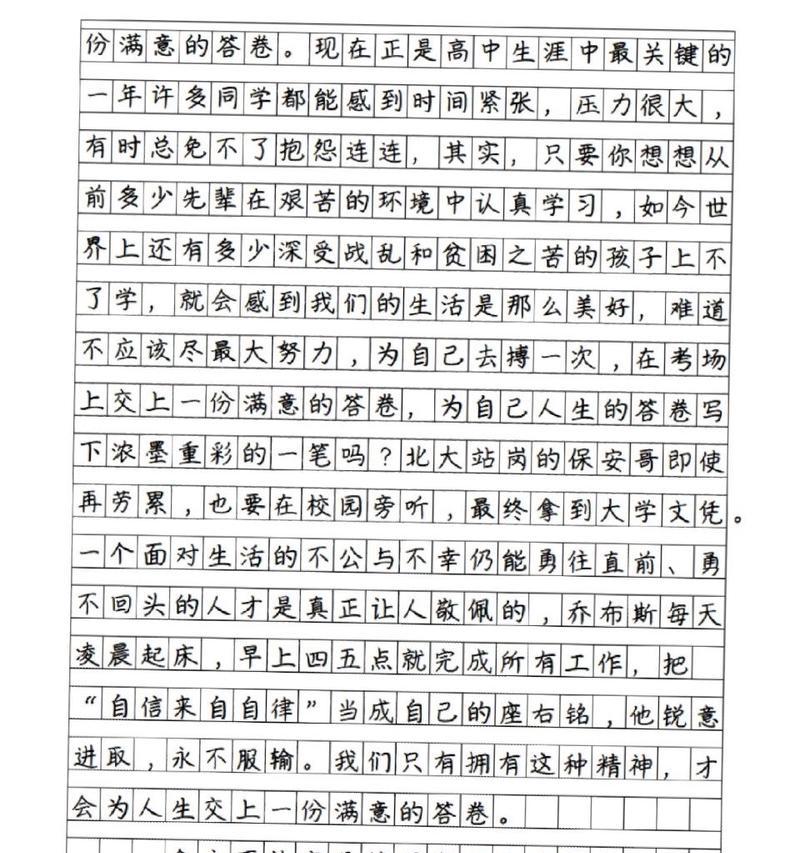 份满意的答卷。现在正是高中生涯中最关键的
一年许多同学都能感到时间紧张，压力很大，
有时总免不了抱怨连连，其实，只要你想想从
前多少先辈在艰苦的环境中认真学习，如今世
界上还有多少深受战乱和贫困之苦的孩子上不
了学，就会感到我们的生活是那么美好，难道
不应该尽最大努力，为自己去搏一次，在考场
上交上一份满意的答卷，为自己人生的答卷写
下浓墨重彩的一笔吗？北大站岗的保安哥即使
再劳累，也要在校园旁听，最终拿到大学文凭。
一个面对生活的不公与不幸仍能勇往直前、勇
不回头的人才是真正让人敬佩的，乔布斯每天
凌晨起床，早上四五点就完成所有工作，把
“自信来自自律”当成自己的座右铭，他锐意
进取，永不服输。我们只有拥有这种精神，才
会为人生交上一份满意的答卷。